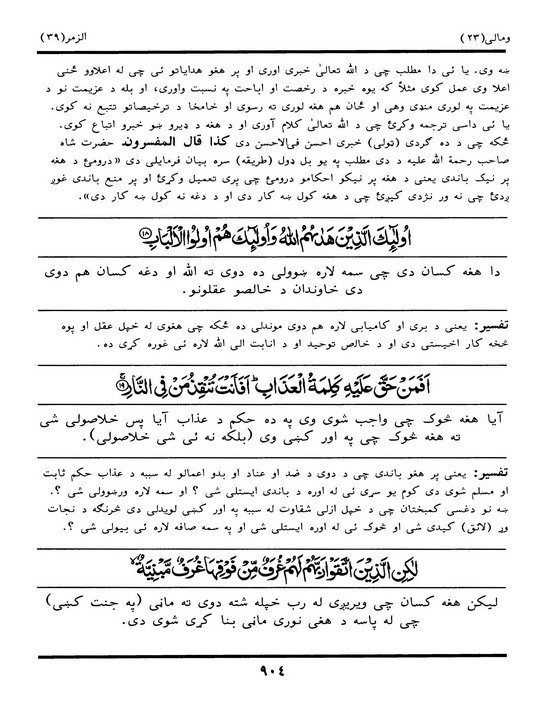 ومالی(۲۳) الزمر(۳۹)
ښه وی. یا ئی دا مطلب چی د الله تعالیٰ خبری اوری او پر هغو هدایاتو ئی چی له اعلاوو ځنی
اعلا وی عمل کوی مثلاً که یوه خبره د رخصت او اباحت په نسبت واوری، او بله د عزیمت نو د
عزیمت په لوری منډی وهی او ځان هم هغه لوری ته رسوی او خامخا د ترخیصاتو تتبع نه کوی.
یا ئی داسی ترجمه وکړئ چی د الله تعالیٰ کلام آوری او د هغه د ډیرو ښو خبرو اتباع کوی.
ځکه چی د ده ګردی (تولی) خبری احسن فی‌الاحسن دی کذا قال المفسرون. حضرت شاه
صاحب رحمة الله علیه د دی مطلب په یو بل ډول (طریقه) سره بیان فرمایلی دی «درومئ د هغه
پر نیک باندی یعنی د هغه پر نیکو احکامو درومئ چی پری تعمیل وکړئ او پر منع باندی غوږ
ږدئ چی نه ور نژدی کیږئ چی د هغه کول ښه کار دی او د دغه نه کول ښه کار دی».
اُولٰٓئِكَ الَّذِيْنَ هَدٰىهُمُ اللّٰهُ وَاُولٰٓئِكَ هُمْ اُولُوا الْاَلْبَابِ ۝۱۸
دا هغه کسان دی چی سمه لاره ښوولی ده دوی ته الله او دغه کسان هم دوی
دی خاوندان د خالصو عقلونو.
تفسیر: یعنی د بری او کامیابی لاره هم دوی موندلی ده ځکه چی هغوی له خپل عقل او پوه
څخه کار اخیستی دی او د خالص توحید او د انابت الی الله لاره ئی غوره کړی ده.
اَفَمَنْ حَقَّ عَلَيْهِ كَلِمَةُ الْعَذَابِ ؕ اَفَاَنْتَ تُنْقِذُ مَنْ فِي النَّارِ ۝۱۹
آیا هغه څوک چی واجب شوی وی په ده حکم د عذاب آیا پس خلاصولی شی
ته هغه څوک چی په اور کښی وی (بلکه نه ئی شی خلاصولی).
تفسیر: یعنی پر هغو باندی چی د دوی د ضد او عناد او بدو اعمالو له سببه د عذاب حکم ثابت
او مسلم شوی دی کوم یو سړی ئی له اوره د باندی ایستلی شی ؟ او سمه لاره ورښوولی شی ؟.
ښه نو دغسی کمبختان چی د خپل ازلی شقاوت له سببه په اور کښی لویدلی دی څرنګه د نجات
وړ (لائق) کیدی شی او څوک ئی له اوره ایستلی شی او په سمه صافه لاره ئی بیولی شی ؟.
لٰكِنِ الَّذِيْنَ اتَّقَوْا رَبَّهُمْ لَهُمْ غُرَفٌ مِّنْ فَوْقِهَا غُرَفٌ مَّبْنِيَّةٌ
لیکن هغه کسان چی ویریږی له رب خپله شته دوی ته ماڼی (په جنت کښی)
چی له پاسه د هغی نوری ماڼی بنا کړی شوی دی.
۹۰۴